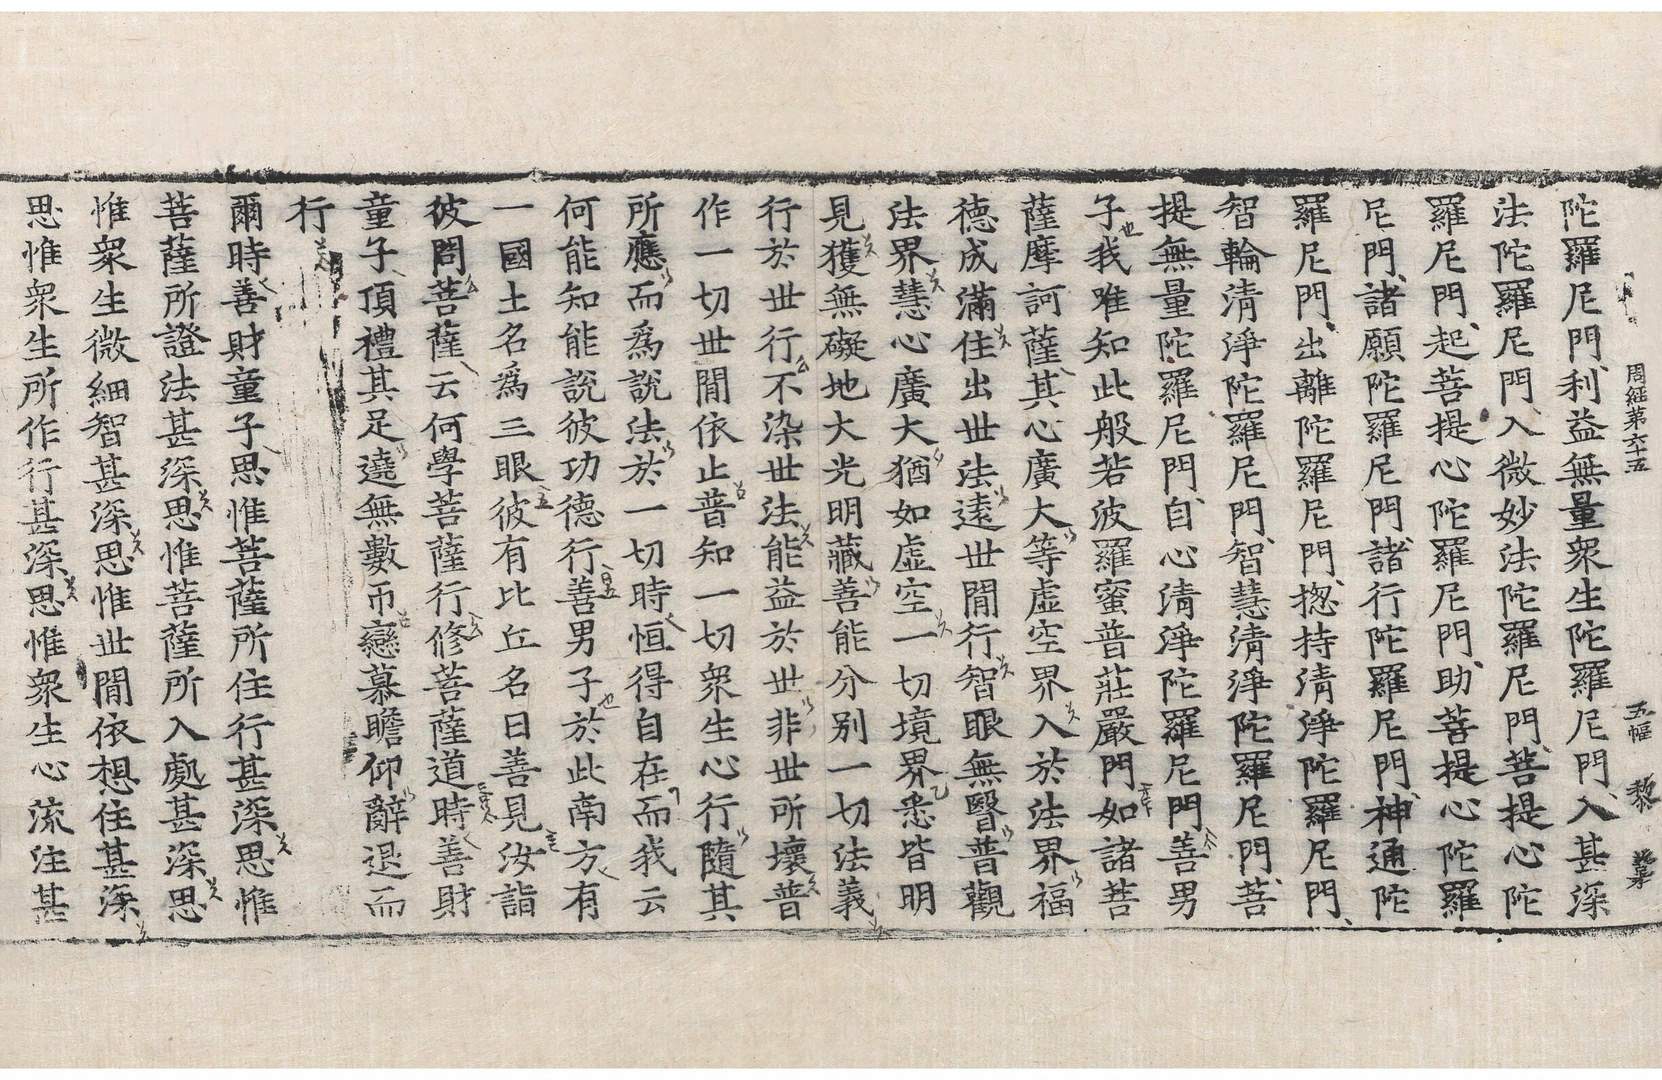 周經第六十五　五幅　黎
陀羅尼門利益無量衆生陀羅尼門入甚深
法陀羅尼門入微妙法陀羅尼門菩提心陀
羅尼門起菩提心陀羅尼門助菩提心陀羅
尼門諸願陀羅尼門諸行陀羅尼門神通陀
羅尼門出離陀羅尼門揔持清淨陀羅尼門
智輪清淨陀羅尼門智慧清淨陀羅尼門菩
提無量陀羅尼門自心清淨陀羅尼門善男
子我唯知此般若波羅蜜普莊嚴門如諸菩
薩摩訶薩其心廣大等虛空界入於法界福
德成滿住出世法遠世間行智眼無翳普觀
法界慧心廣大猶如虛空一切境界悉皆明
見獲無礙地大光明藏善能分別一切法義
行於世行不染世法能益於世非世所壞普
作一切世間依止普知一切衆生心行隨其
所應而爲說法於一切時恒得自在而我云
何能知能說彼功德行善男子於此南方有
一國土名爲三眼彼有比丘名曰善見汝詣
彼問菩薩云何學菩薩行修菩薩道時善財
童子頂禮其足遶無數帀戀慕瞻仰辭退而
行
爾時善財童子思惟菩薩所住行甚深思惟
菩薩所證法甚深思惟菩薩所入處甚深思
惟衆生微細智甚深思惟世間依想住甚深
思惟衆生所作行甚深思惟衆生心流注甚